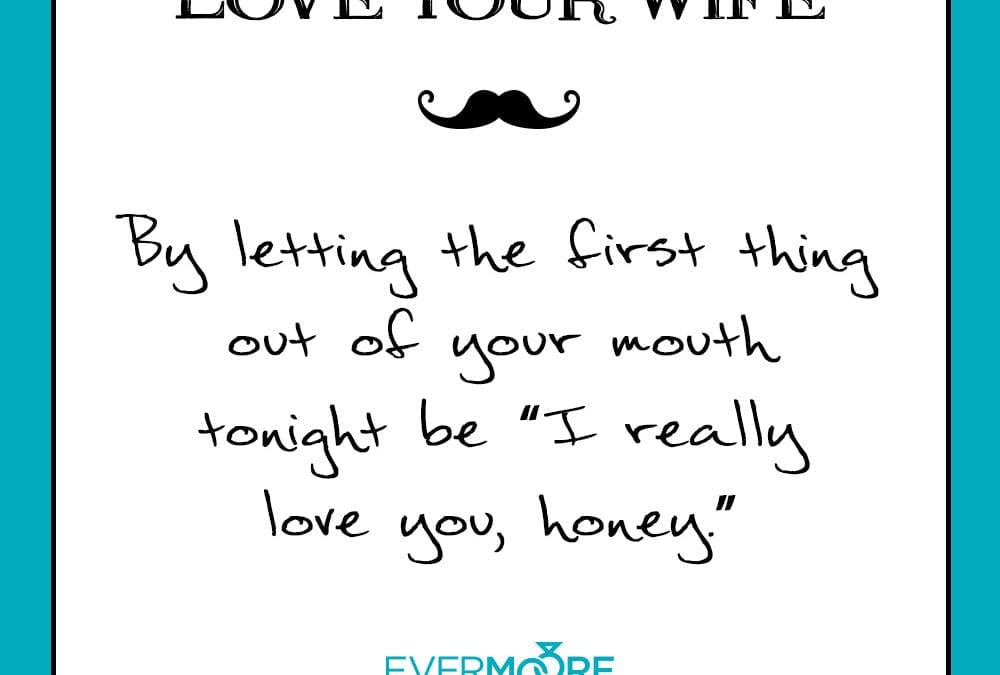 LOVE YOUR WIFE
By letting the first thing
out of your mouth
tonight be "I really
love you, honey."
EVERMOORE